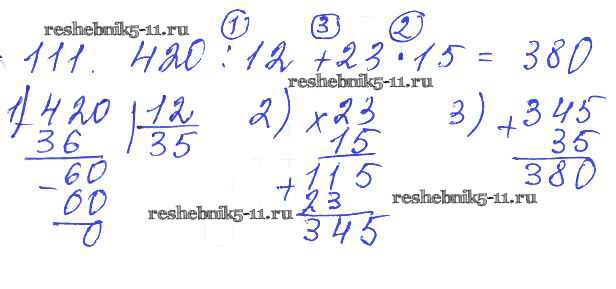 reshebnik5-11.ru
① ③ ②
111. 420 : 12 + 23 · 15 = 380
reshebnik5-11.ru
1) 420 | 12 2) × 23 3) + 345
36 35 15 35
- 60 + 115 380
60 23
reshebnik5-11.ru reshebnik5-11.ru
0 345